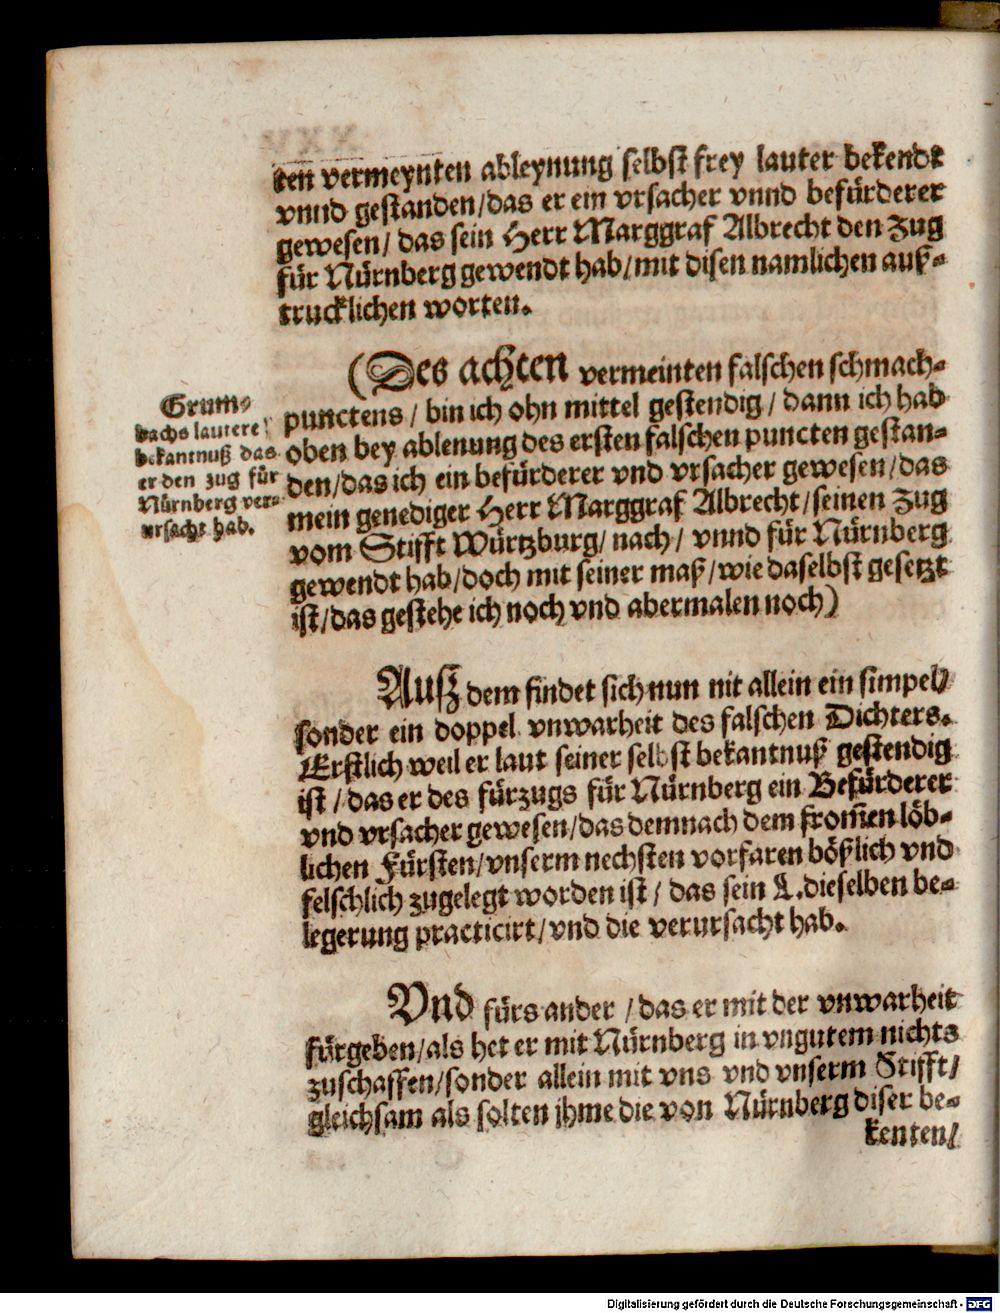 ten vermeynten ableynung selbst frey lauter bekendt
vnnd gestanden/das er ein vrsacher vnnd befürderer
gewesen/ das sein Herr Marggraf Albrecht den Zug
für Nürnberg gewendt hab/mit disen namlichen auß-
trucklichen worten.
(Des achten vermeinten falschen schmach-
punctens / bin ich ohn mittel gestendig / dann ich hab
oben bey ablenung des ersten falschen puncten gestan-
den/das ich ein befürderer vnd vrsacher gewesen/das
mein genediger Herr Marggraf Albrecht/seinen Zug
vom Stifft Würtzburg/ nach/ vnnd für Nürnberg
gewendt hab/doch mit seiner maß/wie daselbst gesetzt
ist/das gestehe ich noch vnd abermalen noch)
Grum-
bachs lautere
bekantnuß das
er den zug für
Nürnberg ver-
ursacht hab.
Ausz dem findet sich nun nit allein ein simpel/
sonder ein doppel vnwarheit des falschen Dichters.
Erstlich weil er laut seiner selbst bekantnuß gestendig
ist / das er des fürzugs für Nürnberg ein Befürderer
vnd vrsacher gewesen/das demnach dem from̃en löb-
lichen Fürsten/vnserm nechsten vorfaren bößlich vnd
felschlich zugelegt worden ist / das sein L.dieselben be-
legerung practicirt/vnd die verursacht hab.
Vnd fürs ander / das er mit der vnwarheit
fürgeben/als het er mit Nürnberg in vngutem nichts
zuschaffen/sonder allein mit vns vnd vnserm Stifft/
gleichsam als solten jhme die von Nürnberg diser be-
kenten/
Digitalisierung gefördert durch die Deutsche Forschungsgemeinschaft - DFG